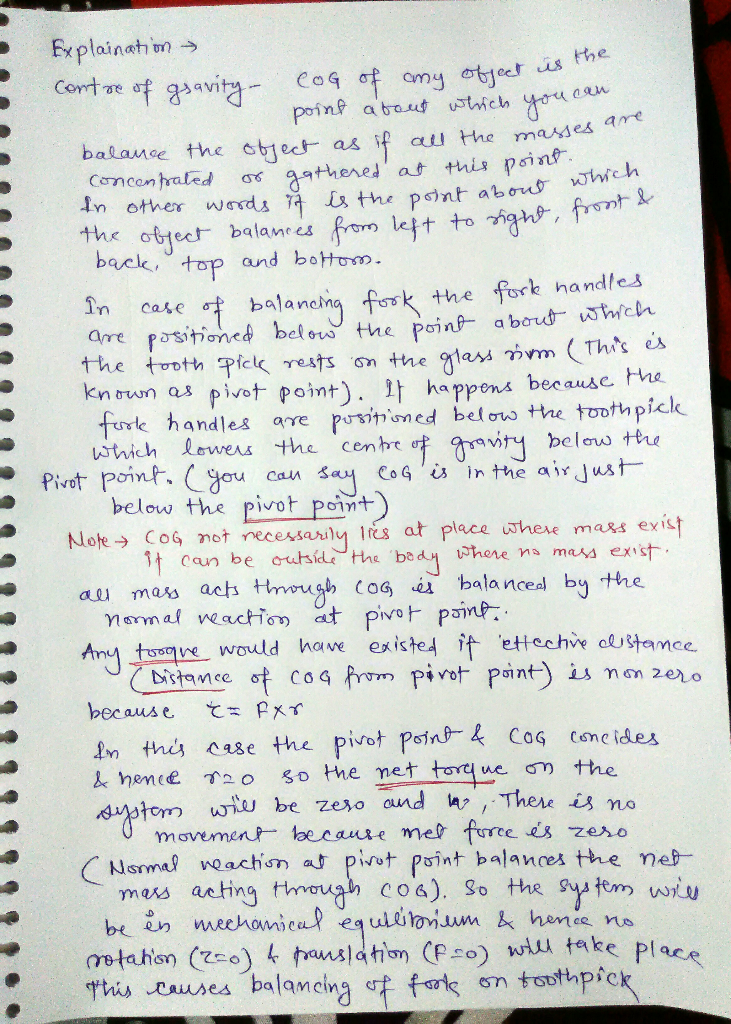 Explaination →
Centre of gravity - COG of any object is the
point about which you can
balance the object as if all the masses are
concentrated or gathered at this point.
In other words it is the point about which
the object balances from left to right, front &
back, top and bottom.
In case of balancing fork the fork handles
are positioned below the point about which
the tooth pick rests on the glass rim (This is
known as pivot point). It happens because the
fork handles are positioned below the toothpick
which lowers the centre of gravity below the
Pivot point. (you can say COG is in the air just
below the pivot point)
Note → COG not necessarily lies at place where mass exist
it can be outside the body where no mass exist.
all mass acts through COG is balanced by the
normal reaction at pivot point.
Any torque would have existed if effective distance
(Distance of COG from pivot point) is non zero
because τ = F×r
In this case the pivot point & COG concides
& hence r=0 so the net torque on the
system will be zero and , There is no
movement because net force is zero
(Normal reaction at pivot point balances the net
mass acting through COG). So the system will
be in mechanical equilibrium & hence no
rotation (τ=0) & translation (F=0) will take place
This causes balancing of fork on toothpick